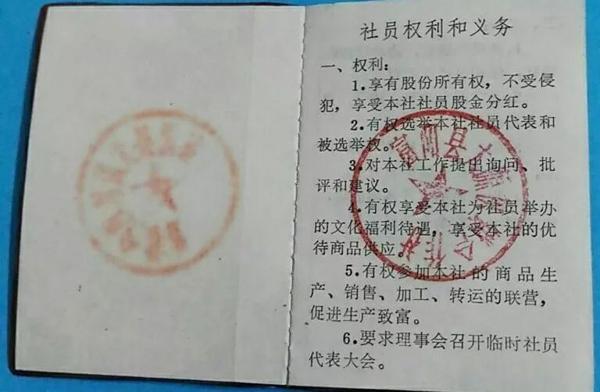 社员权利和义务
一、权利:
1.享有股份所有权,不受侵
犯,享受本社社员股金分红。
2.有权选举本社社员代表和
被选举权。
3.对本社工作提出询问、批
评和建议。
4.有权享受本社为社员举办
的文化福利待遇,享受本社的优
待商品供应。
5.有权参加本社的商品生
产、销售、加工、转运的联营,
促进生产致富。
6.要求理事会召开临时社员
代表大会。